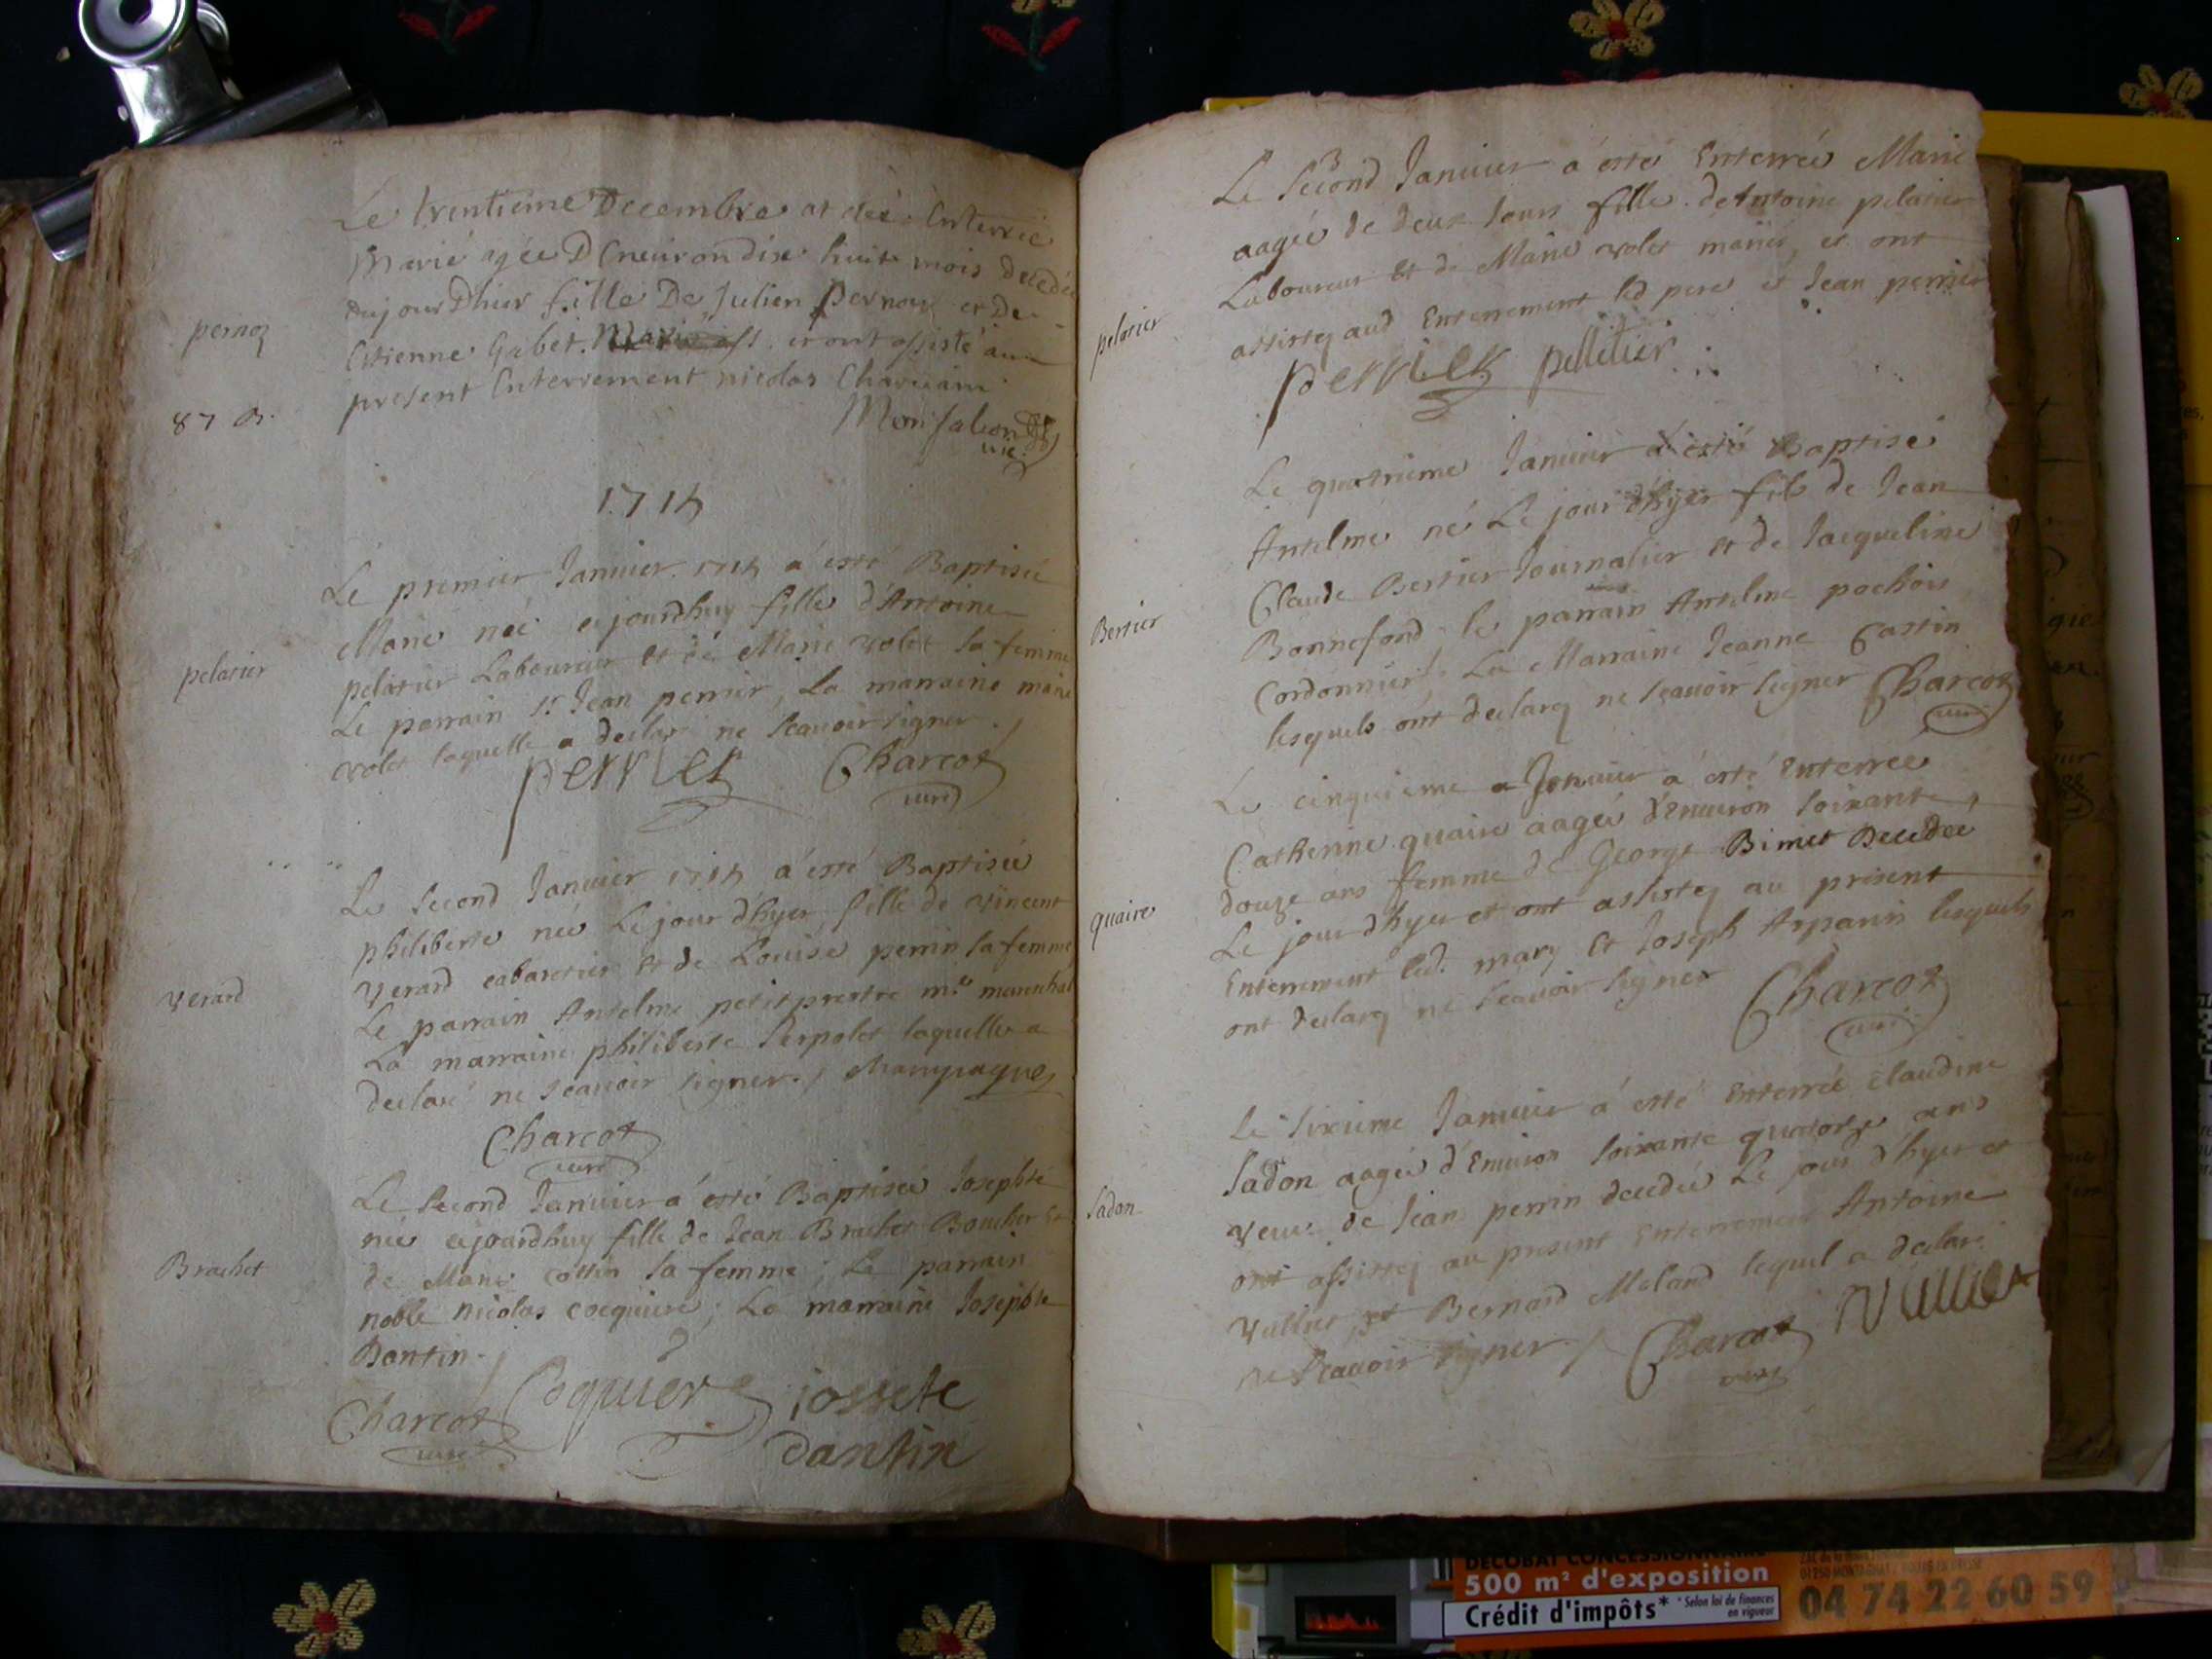 Le trentieme Decembre at eté Enterrée
Marie agée D Environ dix huit mois decedée
aujourDhier fille De Julien pernoz et De
Etienne Gabet. et ont assisté au
present Enterrement nicolas Charvain
pernoz
87 B.
Monfalcon
vic.
1714
Le premier Janvier 1714 a esté Baptisée
Marie née ajourdhuy fille d'Antoine
pelatier Laboureur et de Marie volet sa femme
Le parrain Sr. Jean perrier, La marraine marie
volet laquelle a declaré ne scavoir signer.
pelatier
perrier Charcot
curé
Le second Janvier 1714 a esté Baptisée
philiberte née Le jour d'hyer fille de vincent
verard cabaretier et de Louise perrin sa femme
Le parrain Antelme petit prestre me. mareschal
La marraine philiberte Serpolet laquelle a
declaré ne scavoir signer./
verard
Charcot
curé
Le second Janvier a esté Baptisée Josephte
née ajourdhuy fille de Jean Brachet Boucher Et
de Marie cottin sa femme ; Le parrain
noble nicolas cocquiere ; La marraine Josephte
Dantin./
Brachet
Charcot Coquiere jossete
curé dantin
Le second Janvier a esté Enterrée Marie
aagée de deux Jours fille de Antoine pelatier
Laboureur et de Marie volet mariés, et ont
assistez aud Enterrement led pere et Jean perrier
pelatier
perrier pelletier
Le quatrieme Janvier a esté Baptisé
Antelme né Le jour d'hyer fils de Jean
Claude Bertier Journalier et de Jacqueline
Bonnefond, le parrain Antelme pochois
Cordonnier ; La Marraine Jeanne Castin
lesquels ont declarez ne scavoir signer Charcot
curé
Bertier
Le cinquieme Janvier a esté Enterrée
Catherine quaire aagée d'Environ soixante
douze ans femme de George Bimet Decedée
Le jour d'hyer et ont assistez au present
Enterrement led. mary Et Joseph Arparin lesquels
ont declarez ne scavoir signer Charcot
curé
quaire
Le sixieme Janvier a esté Enterrée claudine
Sadon aagée d'Environ soixante quatorze ans
veuve de Jean perrin decedée Le jour d'hyer et
ont assistez au present Enterrement Antoine
Vullier, et Bernard Moland lequel a declaré
ne scavoir signer./ Charcot Vullier
curé
Sadon
DECOBAT CONCESSIONNAIRE
500 m² d'exposition
Crédit d'impôts* *Selon loi de finances
en vigueur
04 74 22 60 59